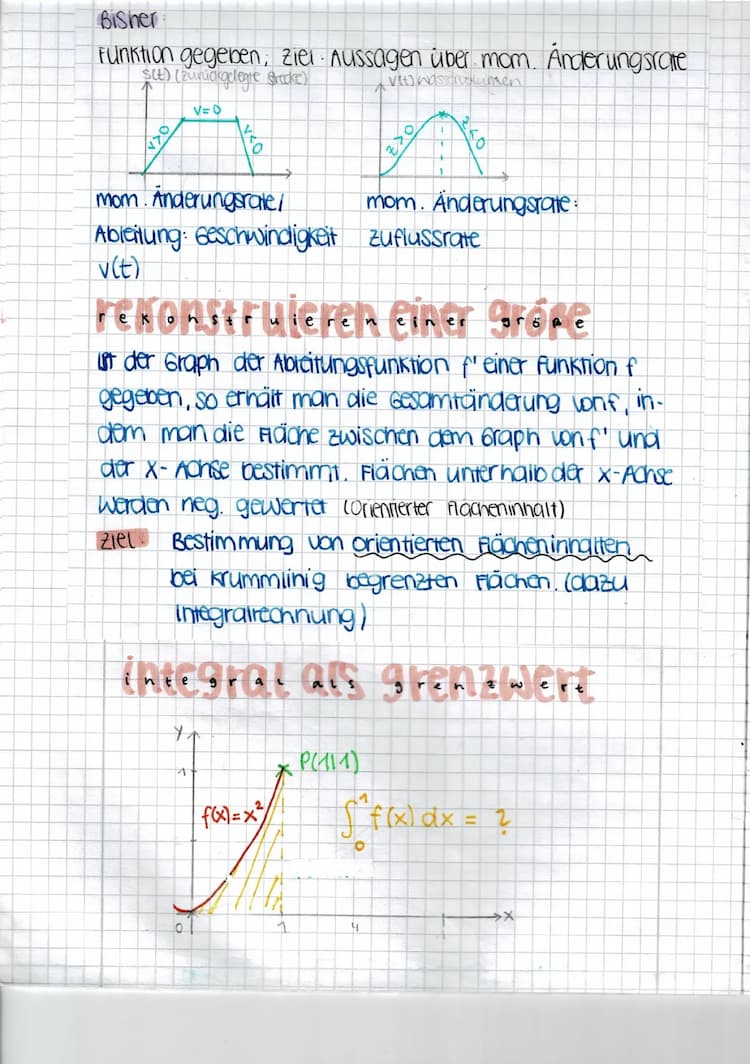 Bisher
Funktion gegeben; Ziel: Aussagen über mom. Änderungsrate
s(t) (zurückgelegte Strecke)
V(t)
v>0
v=0
v<0
z>0
z<0
mom. Änderungsrate/
Ableitung: Geschwindigkeit
v(t)
mom. Änderungsrate:
Zuflussrate
rekonstruieren einer größe
Ist der Graph der Ableitungsfunktion f' einer Funktion f
gegeben, so erhält man die Gesamtänderung von f, in-
dem man die Fläche zwischen dem Graph von f' und
der x-Achse bestimmt. Flächen unterhalb der x-Achse
werden neg. gewertet (orientierter Flächeninhalt)
Ziel: Bestimmung von orientierten Flächeninhalten
bei krummlinig begrenzten Flächen. (dazu
Integralrechnung)
integral als grenzwert
y
1
P(1|1)
f(x)=x²
∫₀¹ f(x) dx = ?
0
1
x